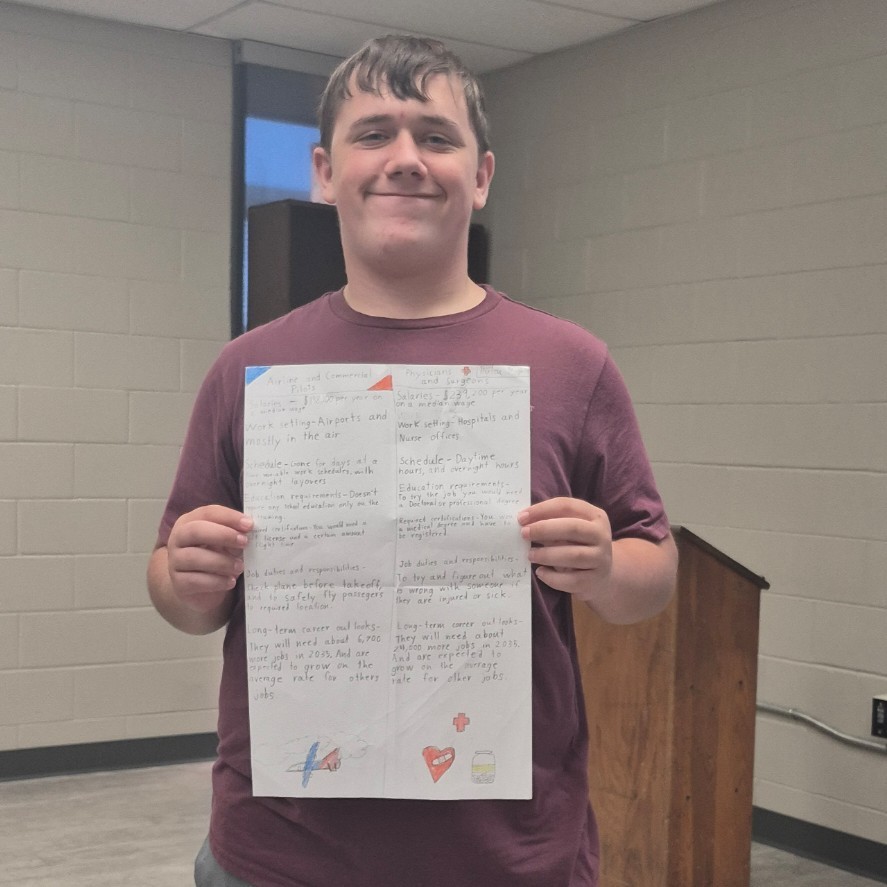 Airline and Commercial
Pilots
Salaries - per year on
a median wage
Work setting-Airports and
mostly in the air
Schedule - Gone for days at a
variable work schedules, with
overnight layovers
Education requirements - Doesn't
any total education only on the
training.
You would need a
license and a certain amount
flight time
Job duties and responsibilities-
Check plane before takeoff,
and to safely fly passegers
to required location.
Long-term career out looks-
They will need about 6,700
more jobs in 2035. And are
expected to grow on the
average rate for others
jobs.
Physicians
and surgeons
Salaries - $239,200 per year
on a median wage
Work setting-Hospitals and
Nurse offices
Schedule - Daytime
hours, and overnight hours
Education requirements-
To try the job you would need
a Doctoral or professional degree
Required certifications - You
a medical degree and have to
be registered
Job duties and responsibilities-
To try and figure out what
is wrong with someone if
they are injured or sick.
Long-term career out looks-
They will need about
more jobs in 2035.
And are expected to
grow on the average
rate for other jobs.